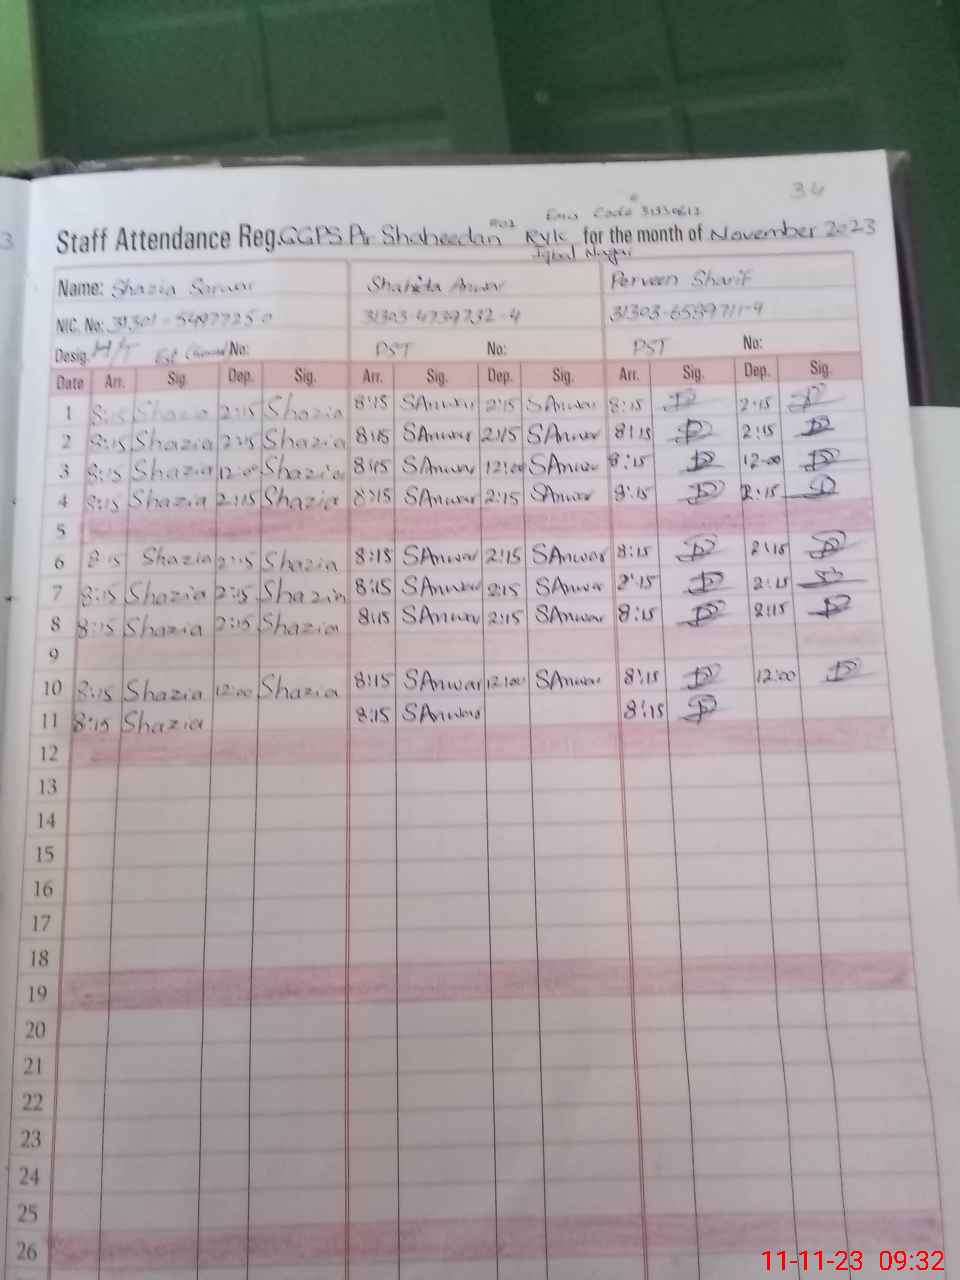 34
Ems Code # 31330612
Staff Attendance Reg. GGPS Pir Shaheedan #02 Ryk for the month of November 2023
Iqbal Nagar
3
Name: Shazia Sarwar Shahida Anwar Perveen Sharif
NIC. No: 31303-4739732-4
Desig. H/T No: PST No: PST No:
Date Arr. Sig. Dep. Sig. Arr. Sig. Dep. Sig. Arr. Sig. Dep. Sig.
1 8:15 Shazia 2:15 Shazia 8:15 SAnwar 2:15 SAnwar 8:15 2:15
2 8:15 Shazia 2:15 Shazia 8:15 SAnwar 2:15 SAnwar 8:15 2:15
3 8:15 Shazia 12:00 Shazia 8:15 SAnwar 12:00 SAnwar 8:15 12:00
4 8:15 Shazia 2:15 Shazia 8:15 SAnwar 2:15 SAnwar 8:15 2:15
5
6 8:15 Shazia 2:15 Shazia 8:15 SAnwar 2:15 SAnwar 8:15 2:15
7 8:15 Shazia 2:15 Shazia 8:15 SAnwar 2:15 SAnwar 8:15 2:15
8 8:15 Shazia 2:15 Shazia 8:15 SAnwar 2:15 SAnwar 8:15 2:15
9
10 8:15 Shazia 12:00 Shazia 8:15 SAnwar 12:00 SAnwar 8:15 12:00
11 8:15 Shazia 8:15 SAnwar 8:15
12
13
14
15
16
17
18
19
20
21
22
23
24
25
26
11-11-23 09:32